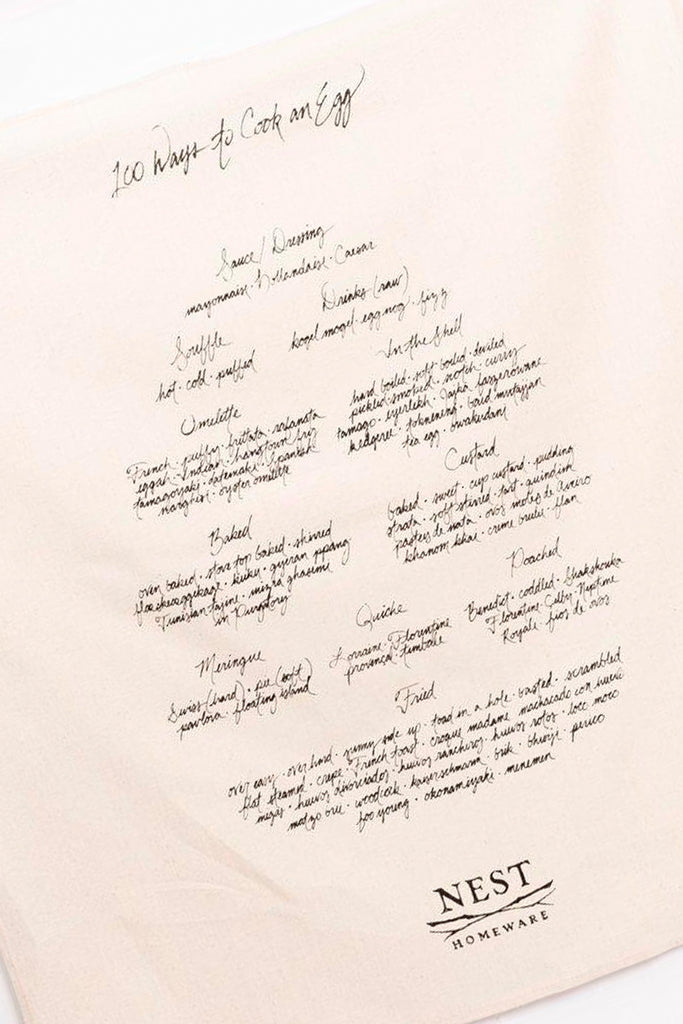 100 Ways to Cook an Egg
Sauce / Dressing
mayonnaise · Hollandaise · Caesar
Drinks (raw)
kogel mogel · egg nog · fizz
Soufflé
hot · cold · puffed
In the Shell
hard boiled · soft boiled · deviled
pickled · smoked · scotch · curry
tamago · eyerlekh · Jajka faszerowane
kedgeree · tokneneng · baid mutajjan
tea egg · bwarkudani
Omelette
French · puffy · frittata ·
eggah · Indian · hangtown fry
tamagoyaki · datemaki · Spanish
narghesi · oyster omelette
Custard
baked · sweet · cup custard · pudding
strata · soft stirred · tart · quindim
pasteis de nata · ovos moles de Aveiro
khanom khai · creme brulee · flan
Baked
oven baked · stove top baked · shirred
flaeskeaeggekage · kuku · gyeran ppang
Tunisian tajine · mirza ghasemi
in Purgatory
Poached
Benedict · coddled · Shakshouka
Florentine · Colby · Neptune
Royale · fios de ovos
Quiche
Lorraine · Florentine
provençal · timbale
Meringue
Swiss (hard) · pie (soft)
pavlova · floating island
Fried
over easy · over hard · sunny side up · toad in a hole · basted · scrambled
flat · steamed · crepe · French toast · croque madame · machacado con huevo
migas · huevos divorciados · huevos rancheros · huevos rotos · loco moco
matzo brei · woodcock · kaiserschmarrn · brik · bhurji · perico
foo young · okonomiyaki · menemen
NEST
HOMEWARE